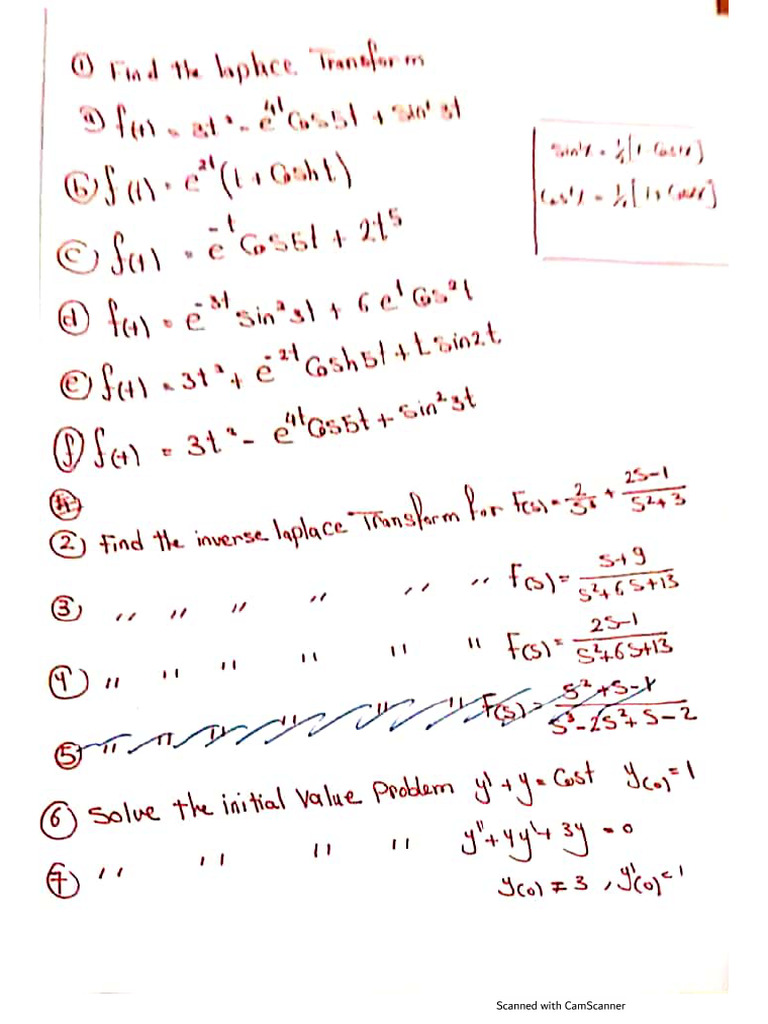 ① Find the laplace Transform
ⓐ f(t) = 3t² - e^4t Cos5t + sin² 3t
ⓑ f(t) = e^2t (1 + Cosh t)
ⓒ f(t) = e^-t Cos5t + 2t^5
ⓓ f(t) = e^-3t sin² 3t + 6 e^t Cos² t
ⓔ f(t) = 3t² + e^-2t Cosh5t + t sin2t
ⓕ f(t) = 3t² - e^4t Cos5t + sin² 3t
② Find the inverse laplace Transform for F(s) = 2/s⁶ + (2s-1)/(s²+3)
③ " " " " " " F(s) = (s+9)/(s²+6s+13)
④ " " " " " " F(s) = (2s-1)/(s²+6s+13)
⑤ " " " " " " F(s) = / (s³-2s²+s-2)
⑥ Solve the initial value Problem y' + y = Cost y(0) = 1
⑦ " " " " y'' + 4y' + 3y = 0
y(0) = 3 , y'(0) = 1
Scanned with CamScanner